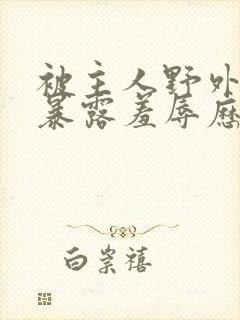 被主人野外
暴露羞辱历
白崇禧